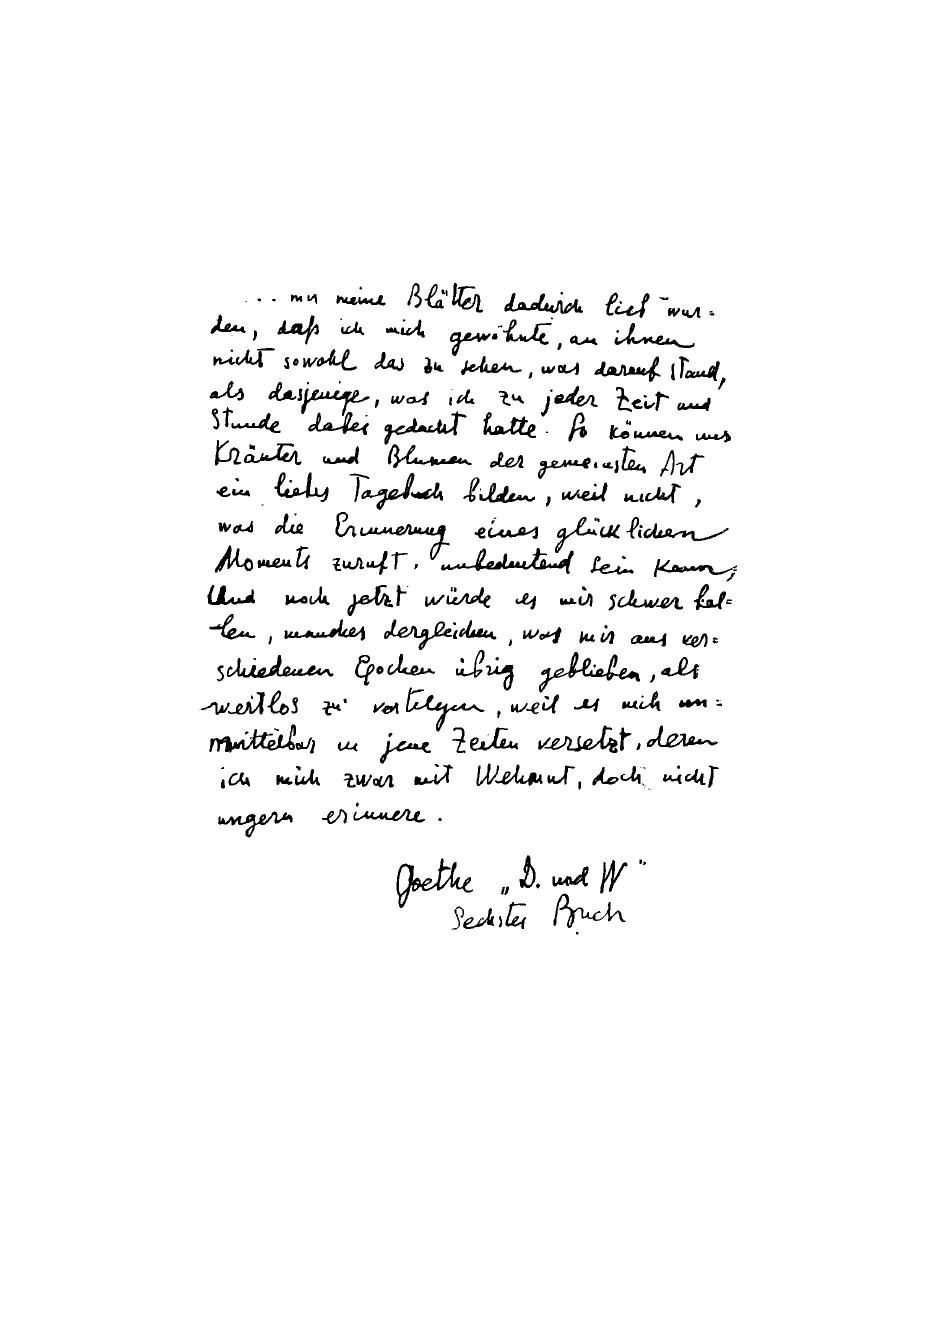 ... mir meine Blätter dadurch lieb wur=
den, daß ich mich gewöhnte, an ihnen
nicht sowohl das zu sehen, was darauf stand,
als dasjenige, was ich zu jeder Zeit und
Stunde dabei gedacht hatte. So können uns
Kräuter und Blumen der gemeinsten Art
ein liebes Tagebuch bilden, weil nicht,
was die Erinnerung eines glücklichen
Moments zuruft, unbedeutend sein kann;
Und noch jetzt würde es mir schwer fal=
len, manches dergleichen, was mir aus ver=
schiedenen Epochen übrig geblieben, als
wertlos zu vertilgen, weil es mich un=
mittelbar in jene Zeiten versetzt, deren
ich mich zwar mit Wehmut, doch nicht
ungern erinnere.
Goethe „D. und W"
Sechster Buch